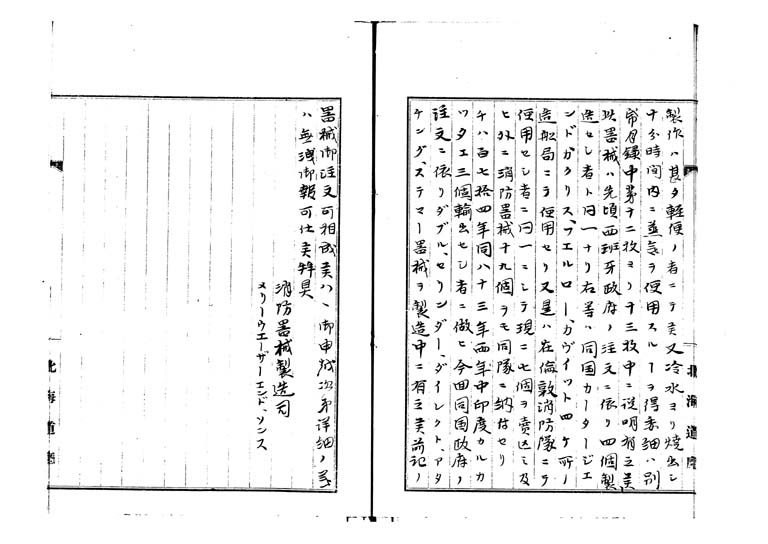 製作ハ甚タ軽便ノ者ニテ美又冷水ヨリ焼出シ
十分時間内ニ蒸気ヲ使用スルヿヲ得委細ハ別
帝目録中第十二枚ヨリ十三枚中ニ説明有之美
此器械ハ先頃西班牙政府ノ注文ニ依リ四個製
造セシ者ト同一ナリ右等ハ同国カータージエ
ンドガクリス、フエルロー、カヴイツト四ケ所ノ
造船局ニテ使用セリ又是ハ在倫敦消防隊ニテ
使用セシ者ニ同一ニシテ現ニ七個ヲ売込ミ及
ヒ外ニ消防器械十九個ヲモ同隊ニ納付セリ
千八百七拾四年同八十三年両年中印度カルカ
ツタエ三個輸出セシ者ニ倣ヒ今回同国政府ノ
注文ニ依リダブル、セリンダー、ダイレクト、アク
チング、ステマー器械ヲ製造中ニ有之美前記ノ
北海道庁
器械御注文可相成美ハヽ御申越次第詳細ノ義
ハ無洩御報可仕美拝具
消防器械製造司
メリーウエーザーエンド、ソンス
北海道廳